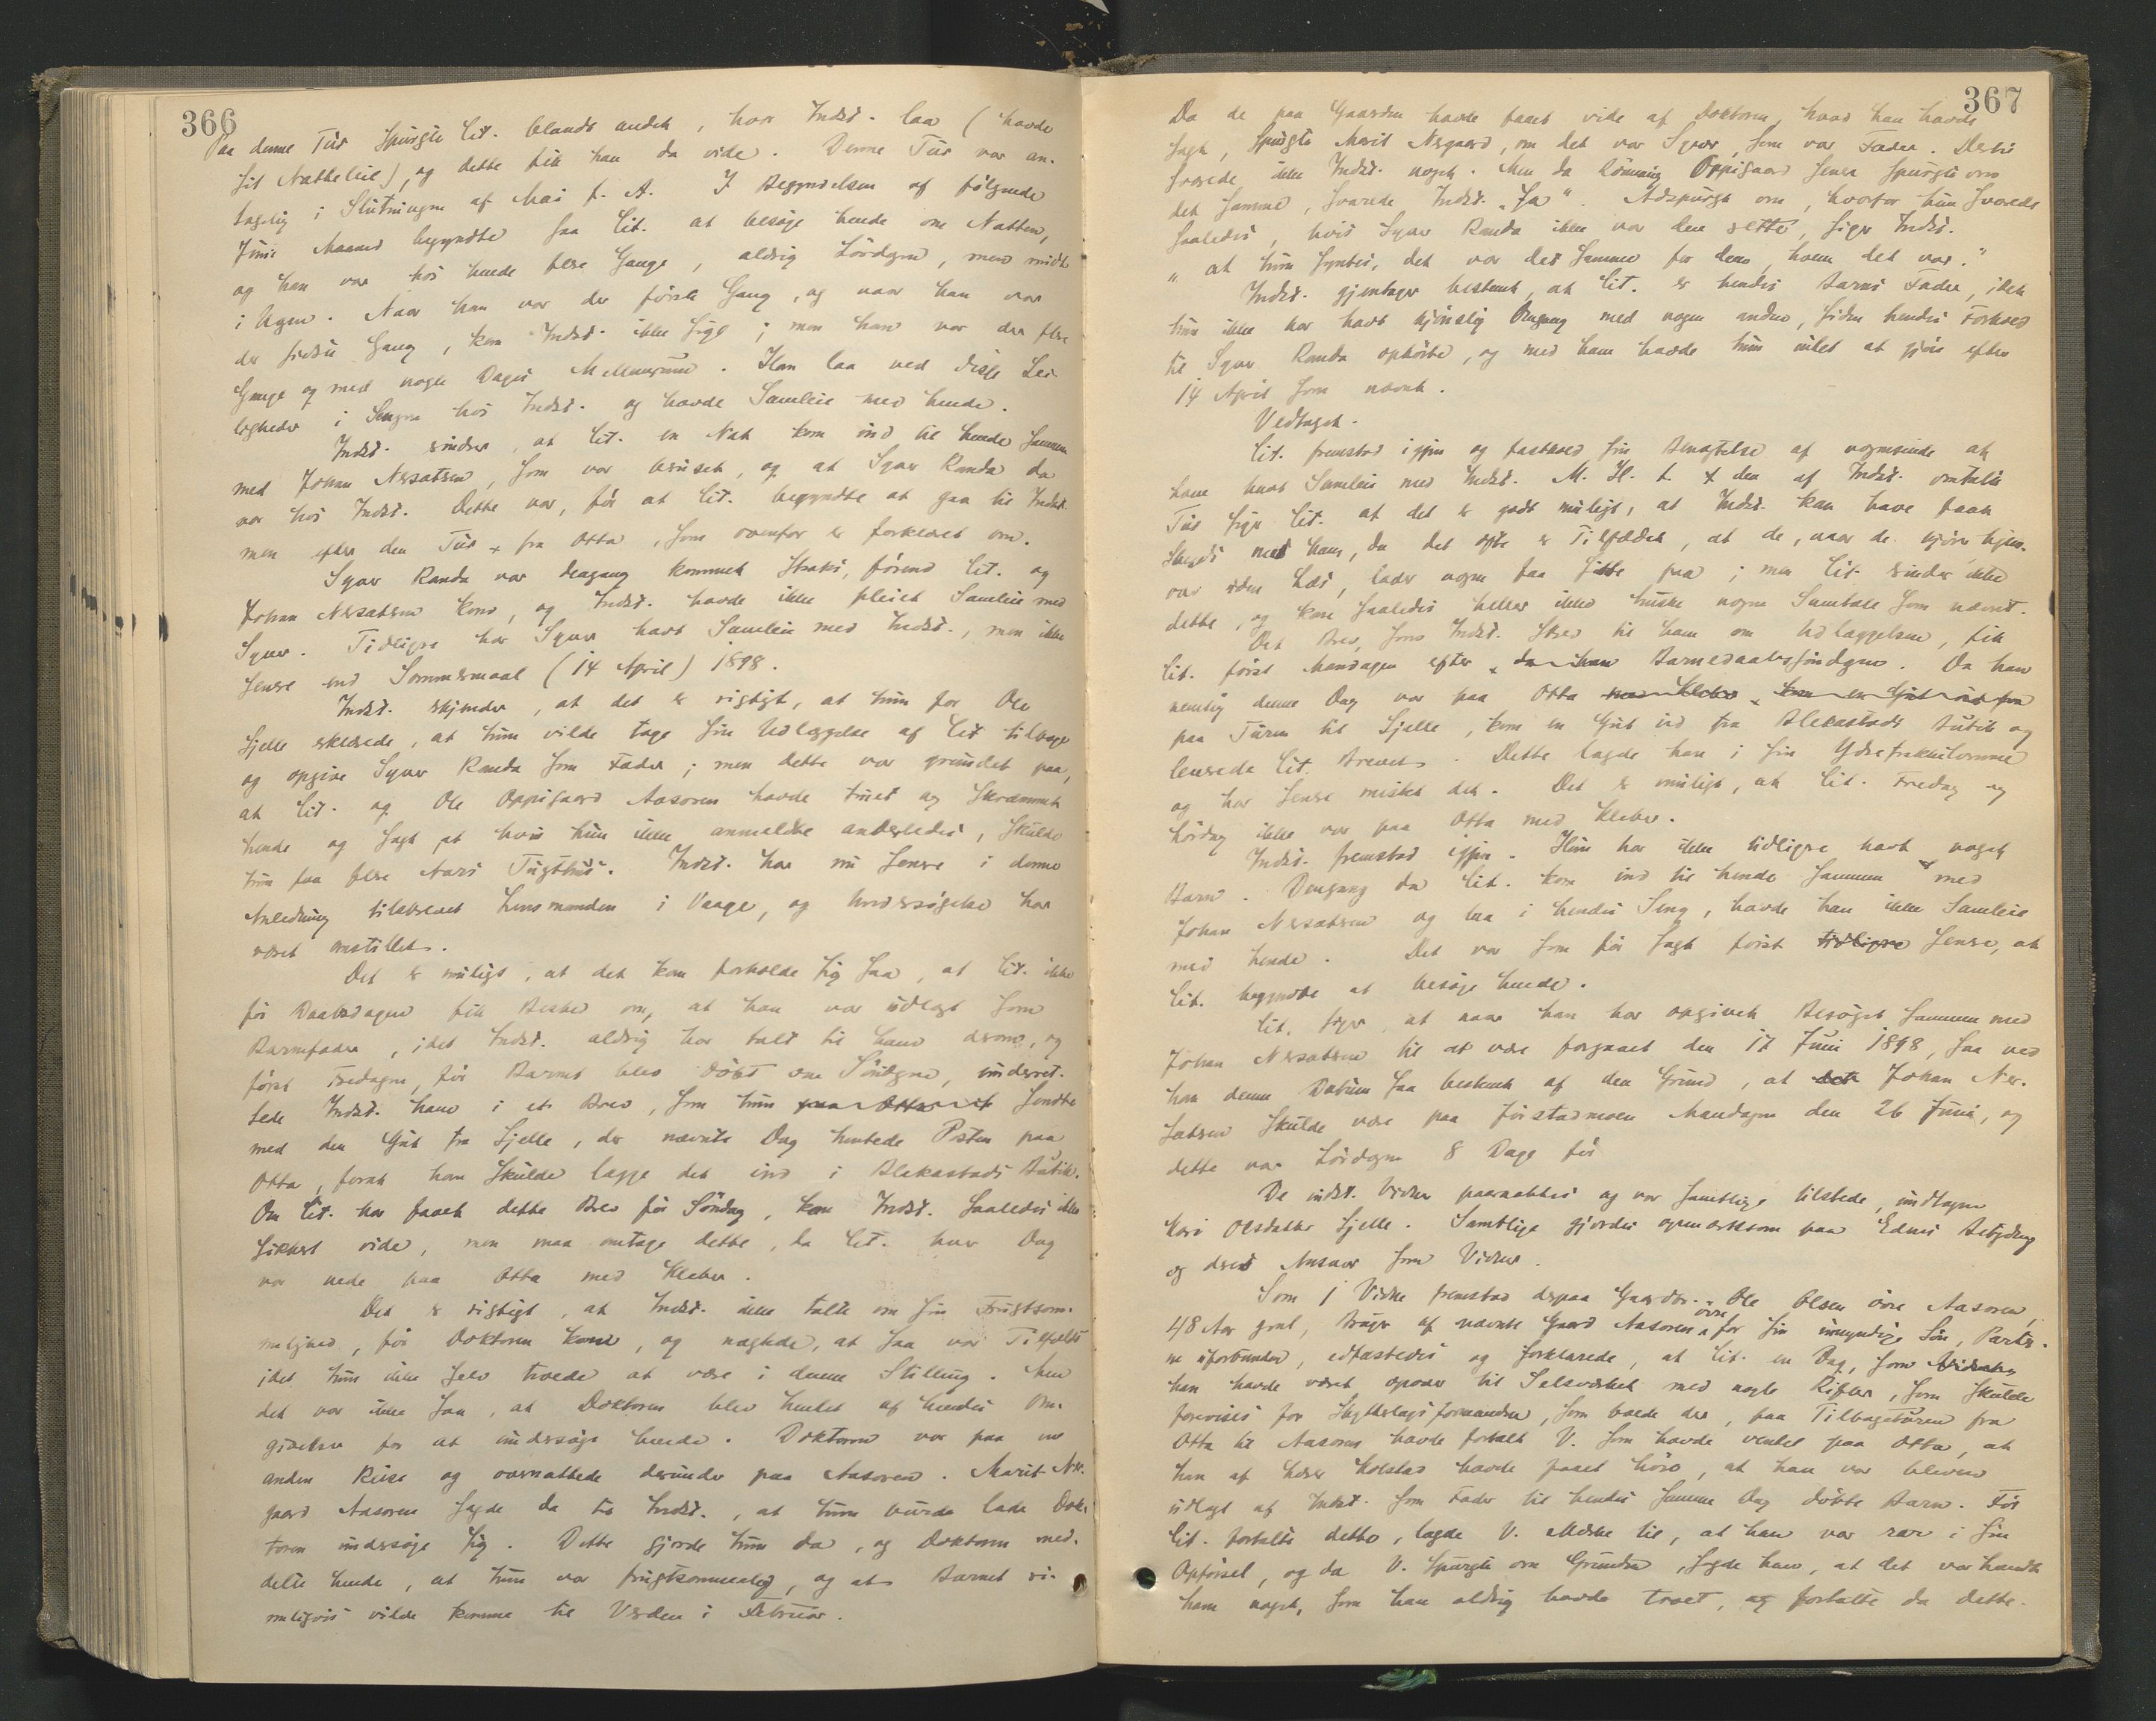 366
Paa denne Tur spurgte Cit. blandt andet, hvor Indst. laa (havde
sit Natteleie), og dette fik han da vide. Denne Tur var an-
tagelig i Slutningen af Mai f. A. I Begyndelsen af følgende
Juni Maaned begyndte saa Cit. at besøge hende om Natten,
og han var hos hende flere Gange, aldrig Lördagen, men midt
i Ugen. Naar han var der første Gang, og naar han var
der sidste Gang, kan Indst. ikke sige; men han var der flere
Gange og med nogle Dages Mellemrum. Han laa ved disse Lei-
ligheder i Sengen hos Indst. og havde Samleie med hende.
Indst. erindrer, at Cit. en Nat kom ind til hende sammen
med Johan Nersatsen, som var beruset, og at Syver Randa da
var hos Indst. Dette var, før at Cit. begyndte at gaa til Indst.
men efter den Tur fra Otta, som ovenfor er forklaret om.
Syver Randa var dengang kommet straks, førend Cit. og
Johan Nersatsen kom, og Indst. havde ikke pleiet Samleie med
Syver. Tidligere har Syver havt Samleie med Indst., men ikke
senere end Sommermaal (14 April) 1898.
Indst. erkjender, at det er rigtigt, at hun for Ole
Sjelle erklærede, at hun vilde tage sin Udlæggelse af Cit tilbage
og opgive Syver Randa som Fader; men dette var grundet paa,
at Cit. og Ole Oppigaard Aasoren havde truet og skræmmet
hende og sagt, at hvis hun ikke anmeldte anderledes, skulde
hun faa flere Aars Tugthus. Indst. har nu senere i denne
Anledning tilskrevet Lensmanden i Vaage, og Undersøgelse har
været anstillet.
Det er muligt, at det kan forholde sig saa, at Cit. ikke
før Daabsdagen fik Besked om, at han var udlagt som
Barnefader, idet Indst. aldrig har talt til ham derom, og
først Fredagen, før Barnet blev døbt om Søndagen, underret-
tede Indst. ham i et Brev, som hun paa Otta sendte
med den Gut fra Sjelle, der nævnte Dag hentede Posten paa
Otta, forat han skulde lægge det ind i Blekastads Butik.
Om Cit. har faaet dette Brev før Søndag, kan Indst. saaledes ikke
sikkert vide, men maa antage dette, da Cit. hver Dag
var nede paa Otta med Kleber.
Det er rigtigt, at Indst. ikke talte om sin Frugtsom-
melighed, før Doktoren kom, og nægtede, at saa var Tilfældet
idet hun ikke selv troede at være i denne Stilling. Men
det var ikke saa, at Doktoren blev hentet af hendes Om-
givelser for at undersøge hende. Doktoren var paa en
anden Reise og overnattede derunder paa Aasoren. Marit Ner-
gaard Aasoren sagde da til Indst., at hun burde lade Dok-
toren undersøge sig. Dette gjorde hun da, og Doktoren med-
delte hende, at hun var frugtsommelig, og at Barnet ri-
meligvis vilde komme til Verden i Februar.
367
Da de paa Gaarden havde faaet vide af Doktoren, hvad han havde
sagt, spurgte Marit Nergaard, om det var Syver, som var Fader. Dertil
svarede ikke Indst. noget. Men da Rönnaug Oppigaard senere spurgte om
det samme, svarede Indst. „Ja“. Adspurgt om, hvorfor hun svarede
saaledes, hvis Syver Randa ikke var den rette, siger Indst.
„at hun syntes, det var det samme for dem, hvem det var.“
Indst. gjentager bestemt, at Cit. er hendes Barns Fader, idet
hun ikke har havt kjønslig Omgang med nogen anden, siden hendes Forhold
til Syver Randa ophørte, og med ham havde hun intet at gjøre efter
14 April som nævnt.
Vedtaget.
Cit. fremstod igjen og fastholdt sin Benægtelse af nogensinde at
have havt Samleie med Indst. M. H. t. den af Indst. omtalte
Tur siger Cit. at det er godt muligt, at Indst. kan have faaet
Skyds med ham, da det ofte er Tilfældet, at de, naar de kjører hjem-
over uden Læs, lader nogen faa sitte paa; men Cit. erindrer ikke
dette, og kan saaledes heller ikke huske nogen Samtale som nævnt.
Det Brev, som Indst. skrev til ham om Udlæggelsen, fik
Cit. først Mandagen efter da han Barnedaabssøndagen. Da han
nemlig denne Dag var paa Otta med Kleber, kom en Gut ud fra
paa Turen til Sjelle, kom en Gut ud fra Blekastads Butik og
leverede Cit. Brevet. Dette lagde han i sin Ydrefrakkelomme
og har senere mistet det. Det er muligt, at Cit. Fredag og
Lørdag ikke var paa Otta med Kleber.
Indst. fremstod igjen. Hun har ikke tidligere havt noget
Barn. Dengang da Cit. kom ind til hende sammen med
Johan Nersatsen og laa i hendes Seng, havde han ikke Samleie
med hende. Det var som før sagt først tidligere senere, at
Cit. begyndte at besøge hende.
Cit. siger, at naar han har opgivet Besøget sammen med
Johan Nersatsen til at være foregaaet den 17 Juni 1898, saa ved
han denne Datum saa bestemt af den Grund, at det Johan Ner-
satsen skulde være paa Jørstadmoen Mandagen den 26 Juni, og
dette var Lördagen 8 Dage før
De indst. Vidner paaraabtes og var samtlige tilstede, undtagen
Kari Olsdatter Sjelle. Samtlige gjordes opmærksom paa Edens Betydning
og deres Ansvar som Vidner.
Som 1 Vidne fremstod derpaa Gaardbr. Ole Olsen övre Aasoren,
48 Aar gml, Bruger af nævnte Gaard Aasoren övre for sin umyndige Søn, Parter-
ne uforbunden, edfæstedes og forklarede, at Cit. en Dag, som Vidnet
han havde været opover til Selsverket med nogle Rifler, som skulde
forevises for Skytterlagsformanden, som boede der, paa Tilbageturen fra
Otta til Aasoren havde fortalt V. som havde ventet paa Otta, at
han af Peder Kolstad havde faaet høre, at han var bleven
udlagt af Indst. som Fader til hendes samme Dag døbte Barn. Før
Cit. fortalte dette, lagde V. Mærke til, at han var rar i sin
Opførsel, og da V. spurgte om Grunden, sagde han, at det var hændt
ham noget, som han aldrig havde troet, og fortalte da dette.